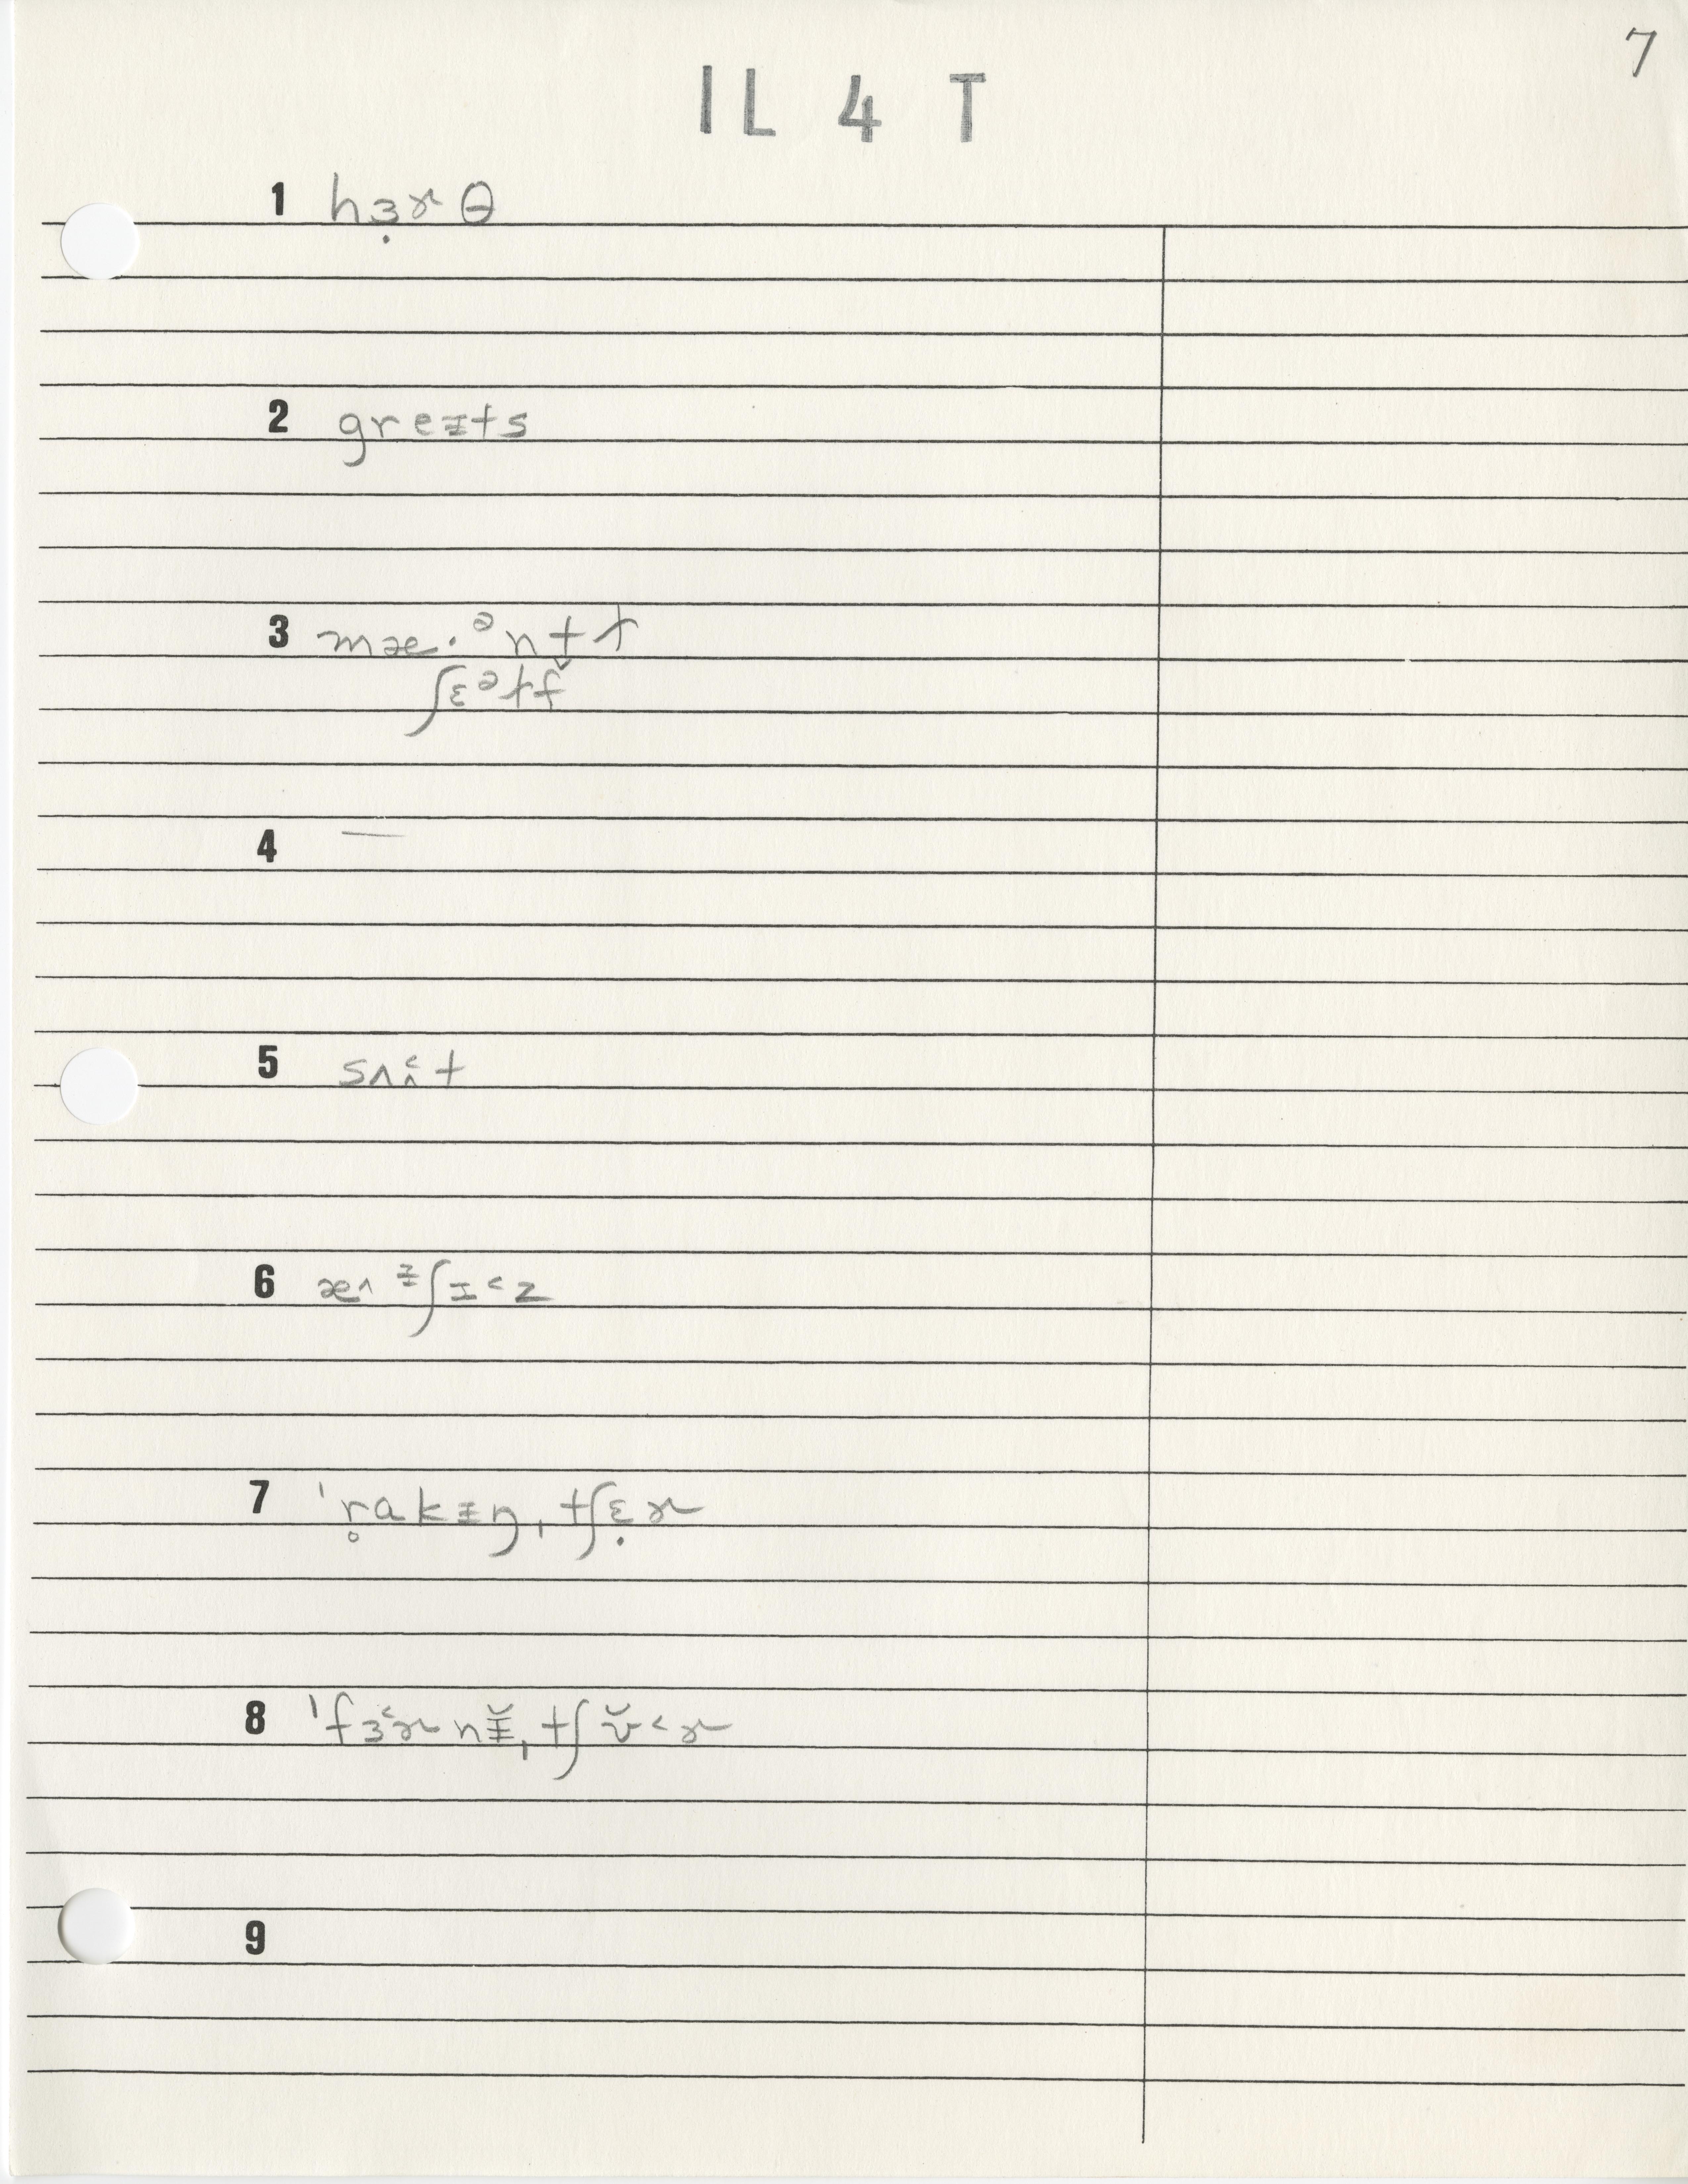 7
IL 4 T
1 hɜ̣ɚ θ
2 greɪts
3 mæ·ᵊntɫ
ʃɛᵊɫf̌
4 —
5 sʌi̭˂t
6 æ˄ᶾʃɪ˂z
7 ˈr̥akɪŋˌtʃɛ̣ɚ
8 ˈfɜ˂ɚnɪ̆ˌtʃʊ̆˂ɚ
9